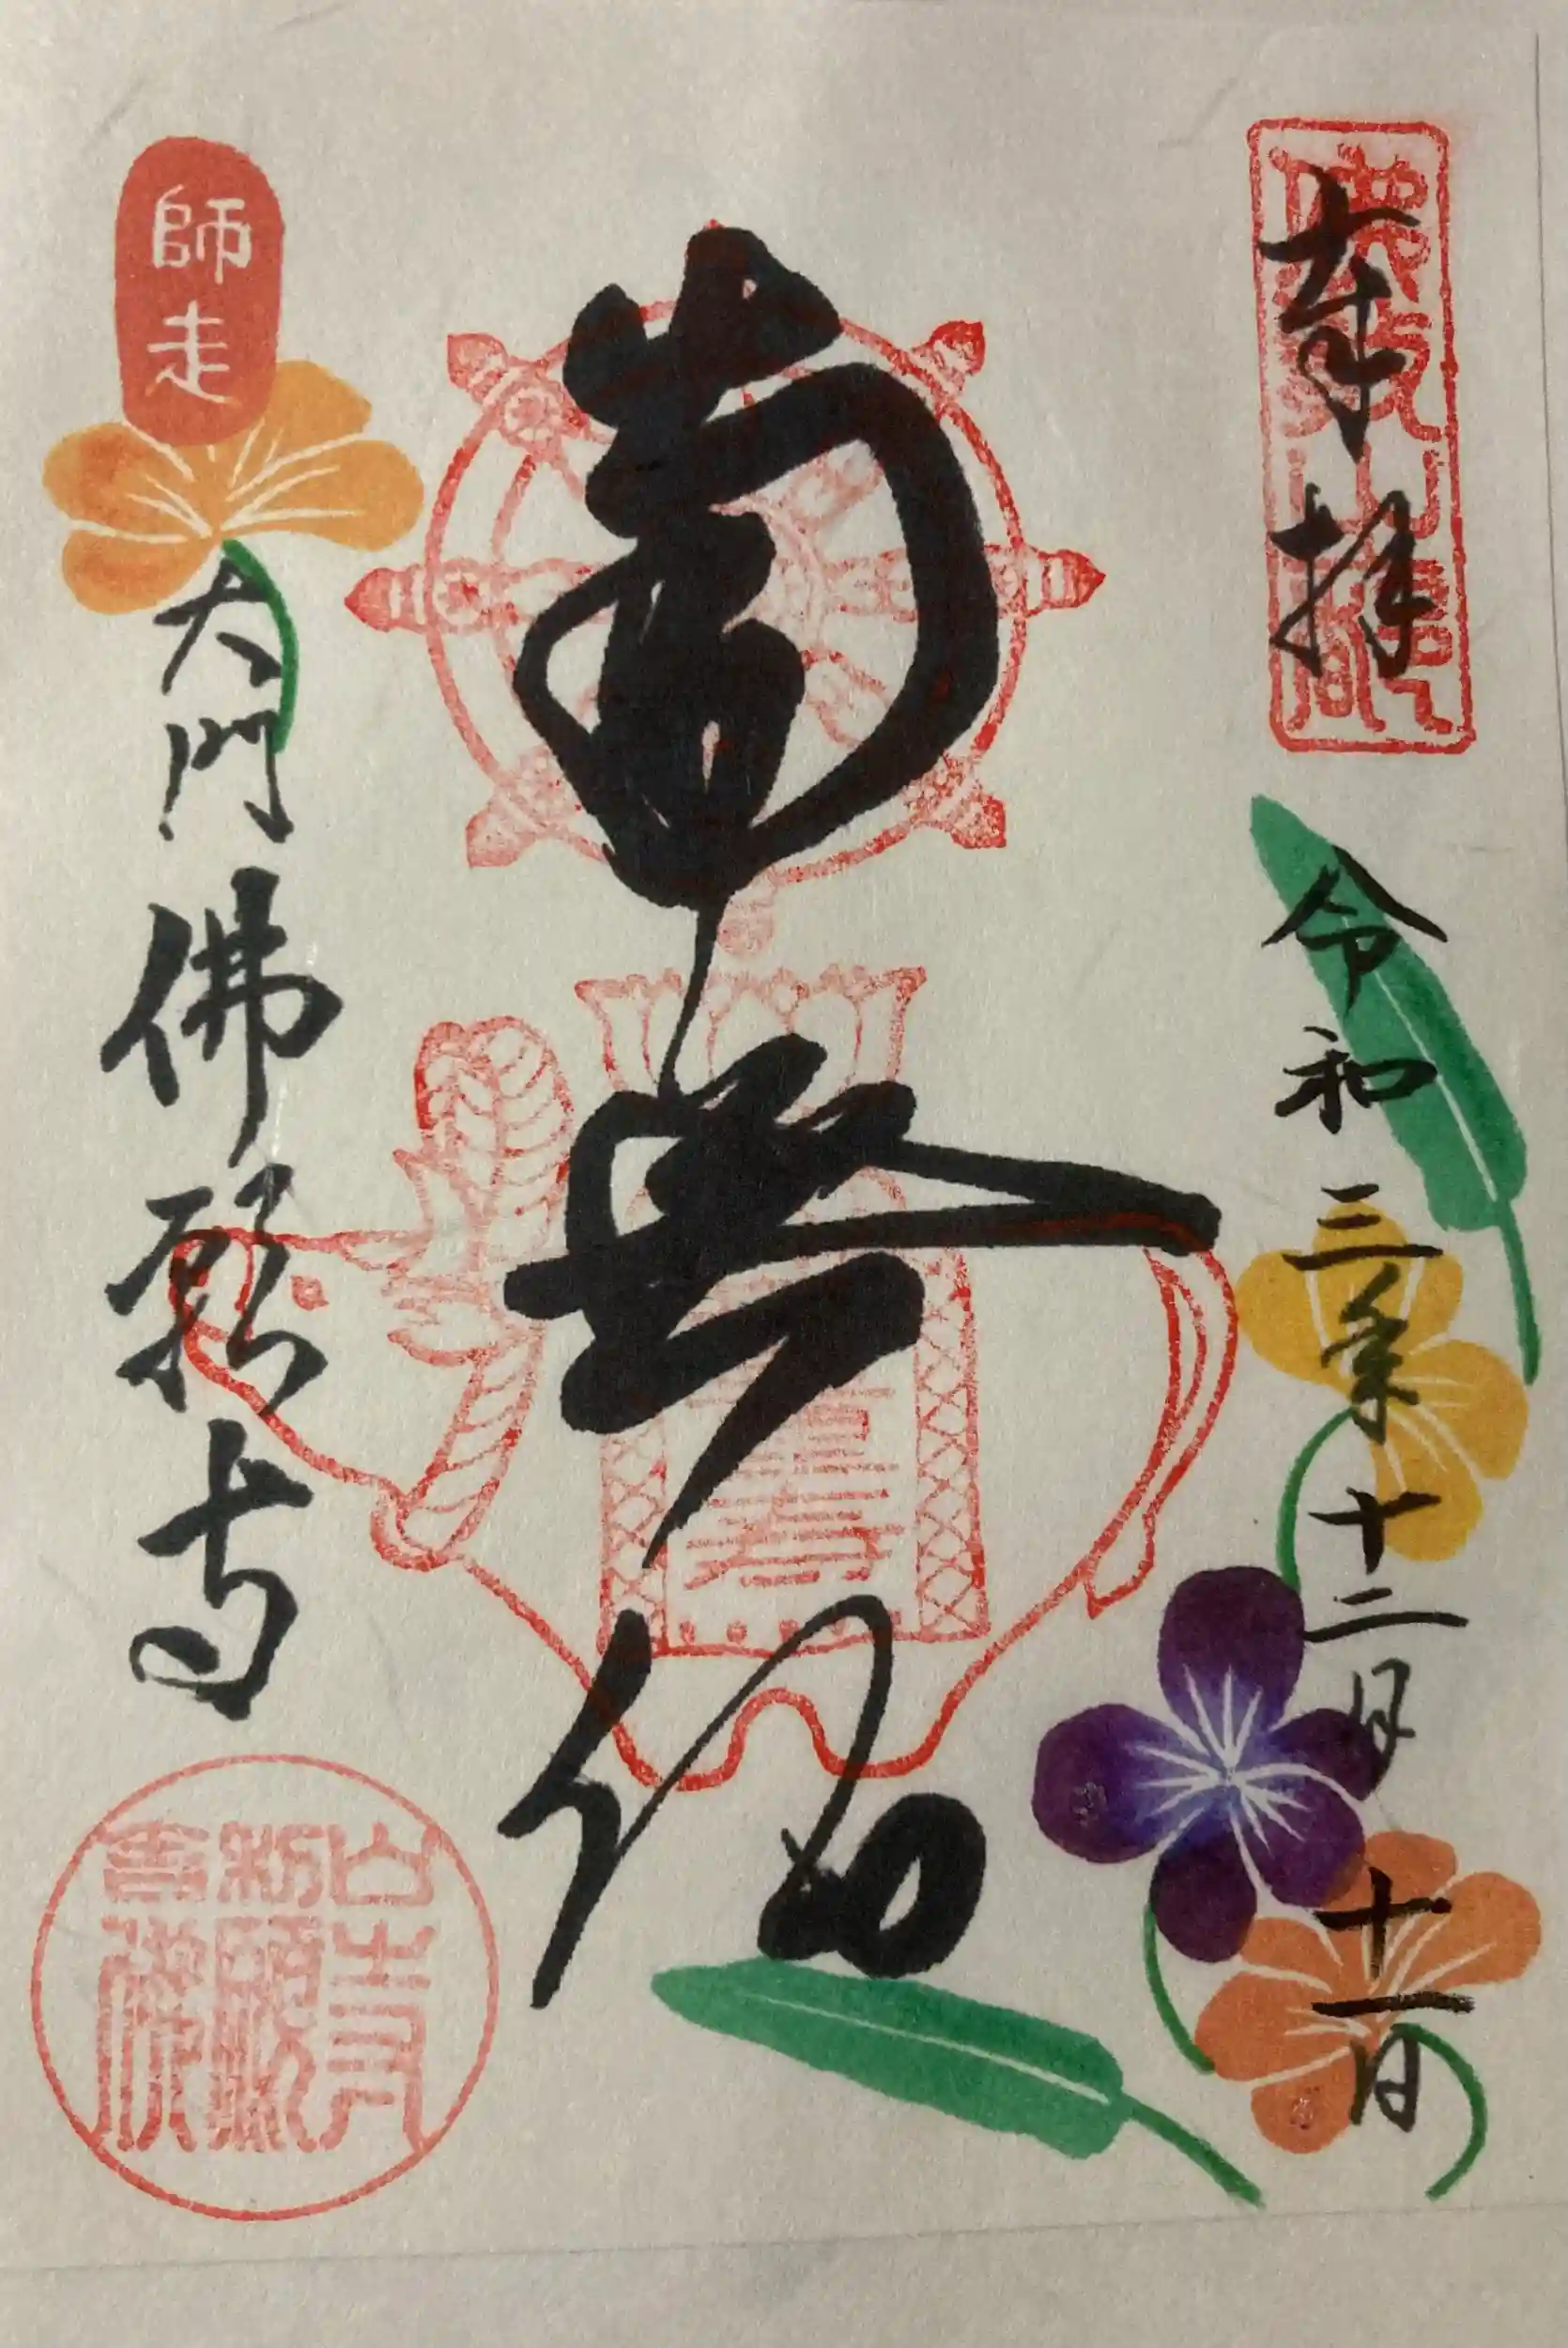 奉拝
令和三年十二月十一日
南無仏
大門佛願寺
師走